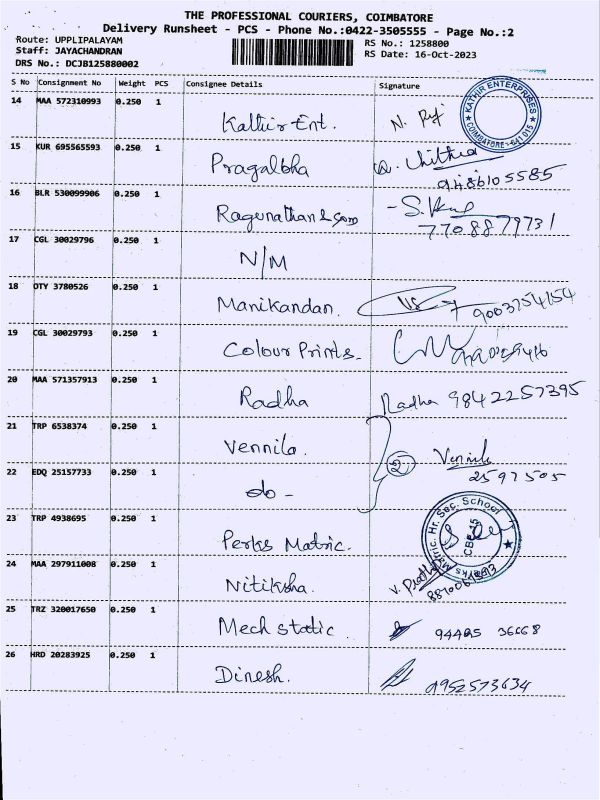 THE PROFESSIONAL COURIERS, COIMBATORE
Delivery Runsheet - PCS - Phone No.:0422-3505555 - Page No.:2
Route: UPPLIPALAYAM
Staff: JAYACHANDRAN
DRS No.: DCJB125880002
RS No.: 1258800
RS Date: 16-Oct-2023
S No Consignment No Weight PCS Consignee Details Signature
14 MAA 572310993 0.250 1 Kathir Ent. N.
KATHIR ENTERPRISES
COIMBATORE - 641 015
15 KUR 695565593 0.250 1 Pragalbha
9486105585
16 BLR 530099906 0.250 1 Ragunathan & Sons
7708879731
17 CGL 30029796 0.250 1 N/M
18 OTY 3780526 0.250 1 Manikandan. 9003754154
19 CGL 30029793 0.250 1 Colour Prints.
20 MAA 571357913 0.250 1 Radha Radha 9842257395
21 TRP 6538374 0.250 1 Vennila. Vennila
2597505
22 EDQ 25157733 0.250 1 do - 2
23 TRP 4938695 0.250 1 Perks Matric.
Perks Matric. Hr. Sec. School
CBE-15
24 MAA 297911008 0.250 1 Nitiksha.
25 TRZ 320017650 0.250 1 Mech static 94425 36668
26 HRD 20283925 0.250 1 Dinesh. 9952573634